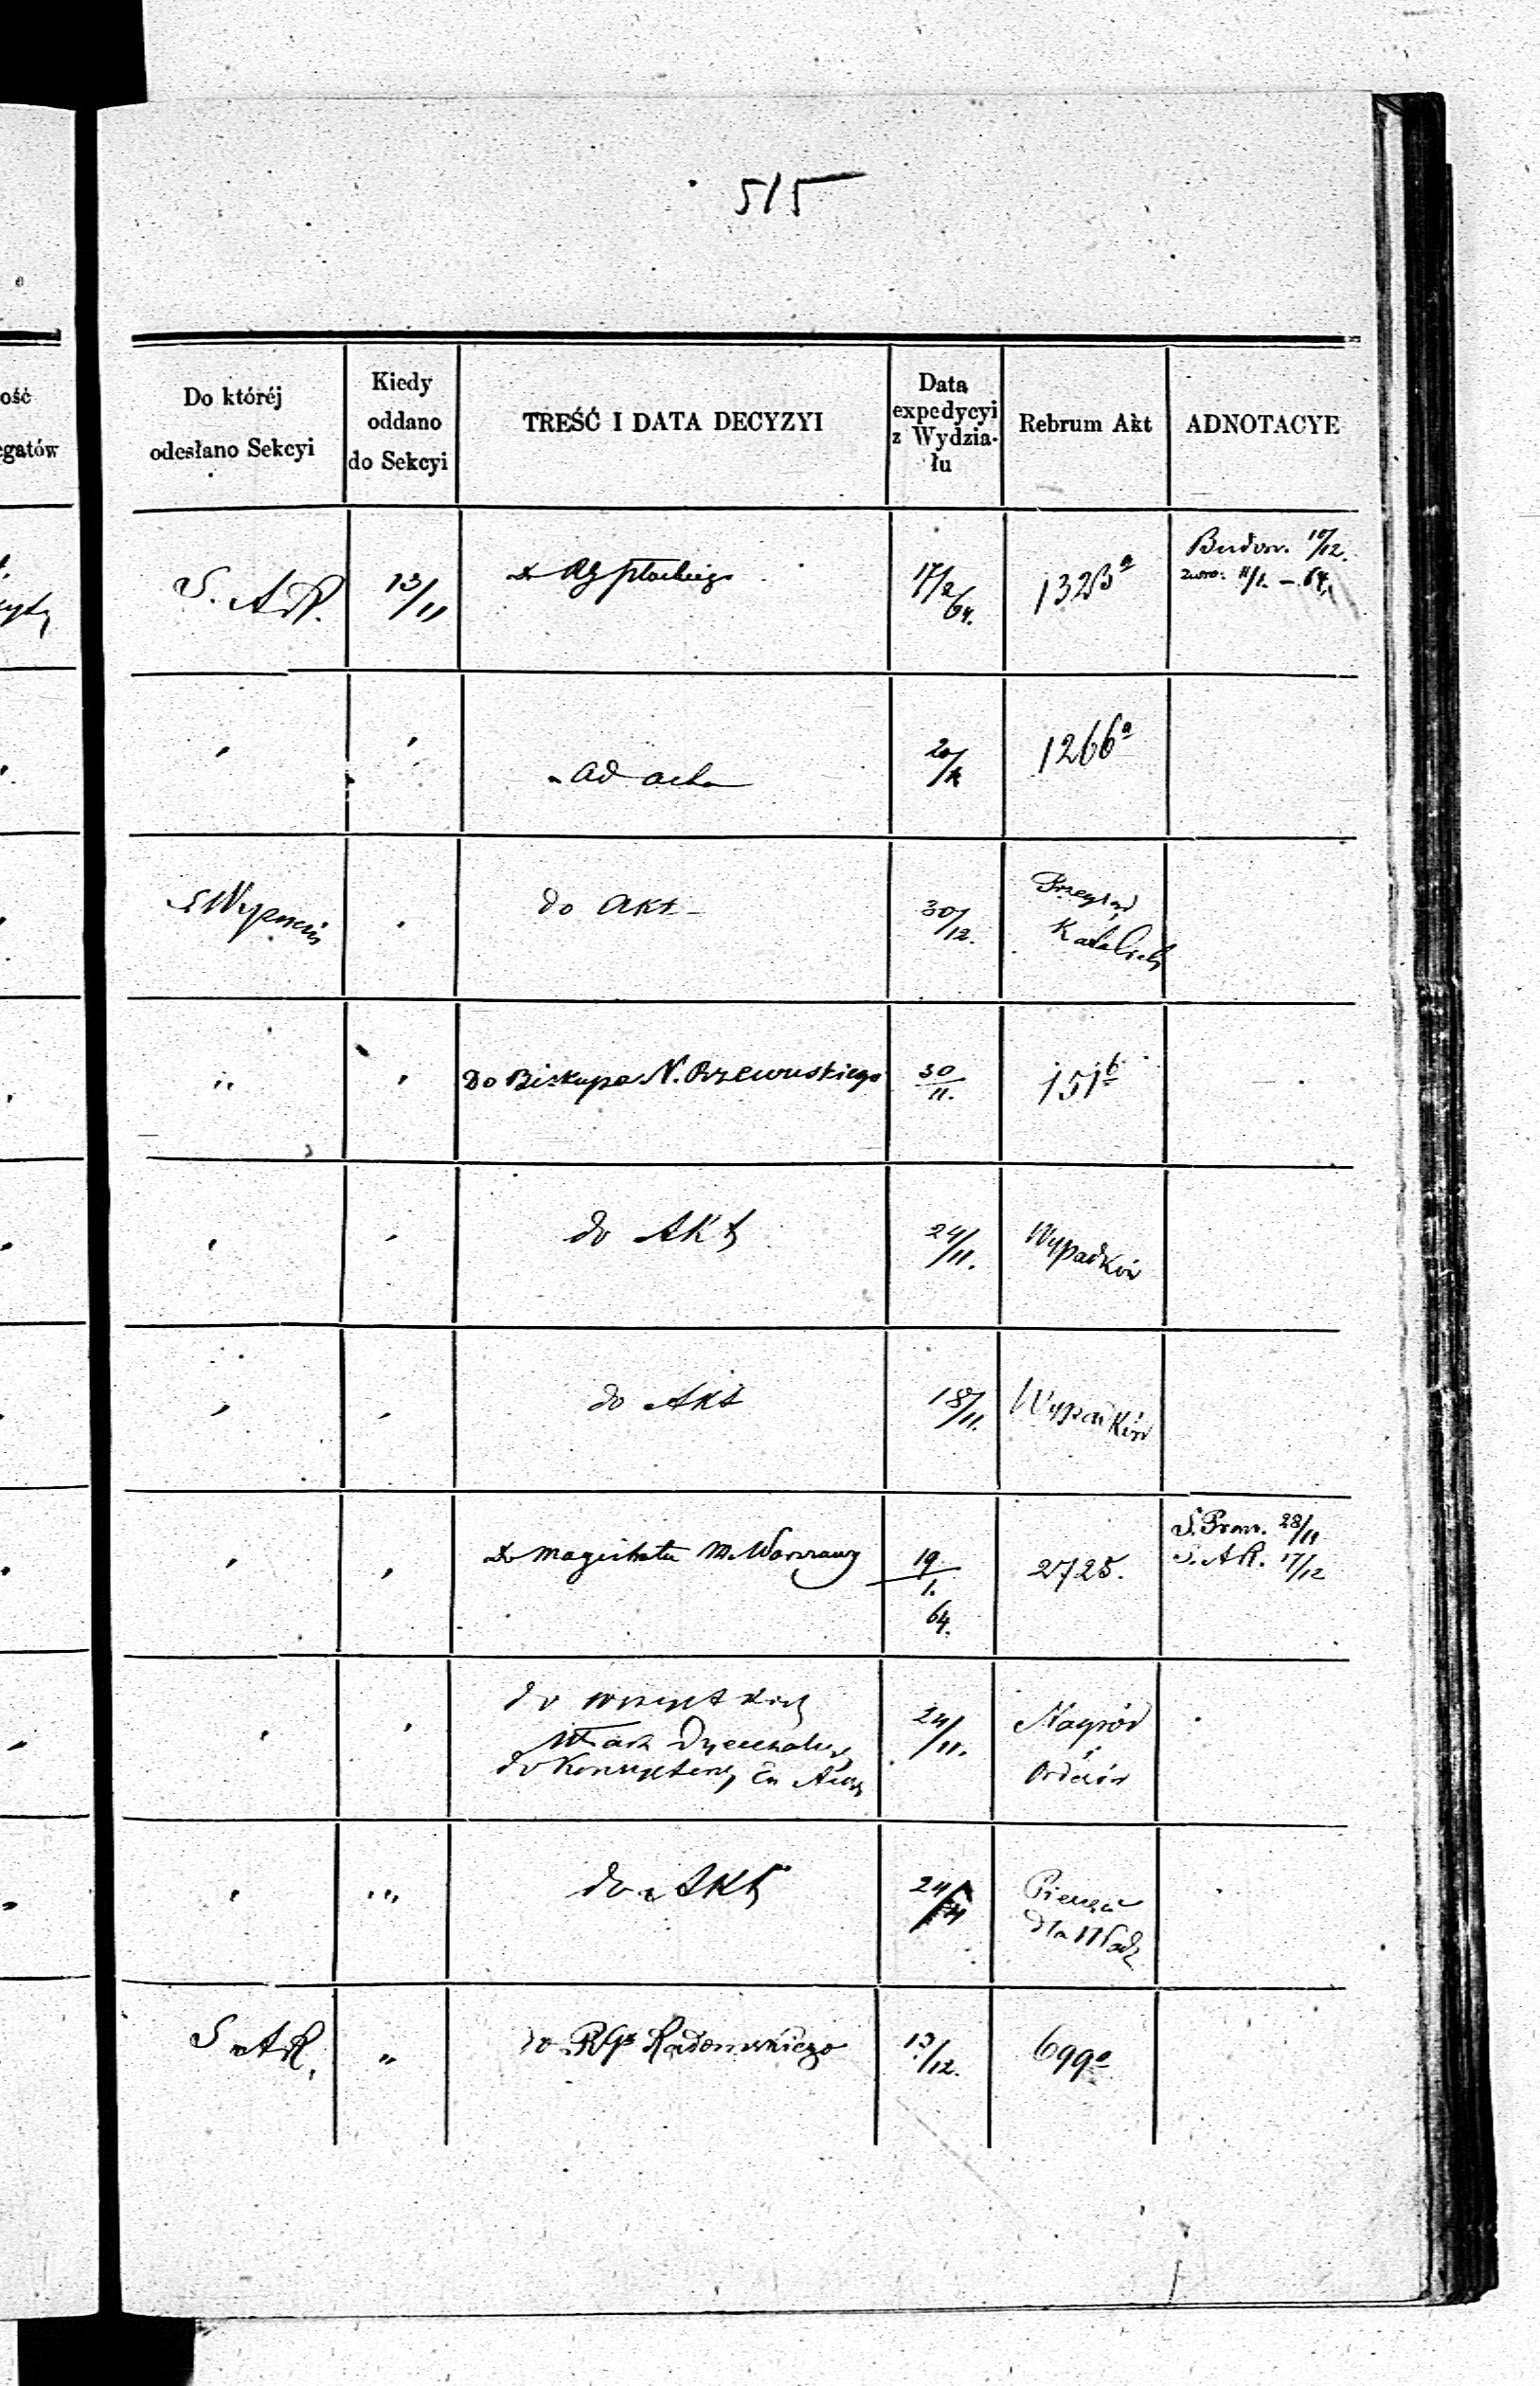 515
ość
egatów
Do któréj
odesłano Sekcyi
Kiedy
oddano
do Sekcyi
TREŚĆ I DATA DECYZYI
Data
expedycyi
z Wydzia-
łu
Rebrum Akt
ADNOTACYE
S. A R.
13/11
do RG Płockiego
17/2
64.
1323 a
Budow. 10/12.
zwro: 11/1. — 64.
"
"
ad acta
20/
1266 a
"
do Akt
30/12.
"
"
Do Biskupa N. Rzewuskiego
30
11.
151 b
"
"
do Akt
24/11.
Wypadków
"
"
do Akt
18/11.
Wypadków
"
"
do Magistratu M. Warszawy
19
1.
64.
2725.
S. Prow. 28/11
S. A R. 17/12
"
"
do wszystkich
Władz
do
24/11.
Nagród
i
Orderów
"
"
do Akt
24/
dla Władz
S A R.
"
do RGo Radomskiego
13/12.
699 a